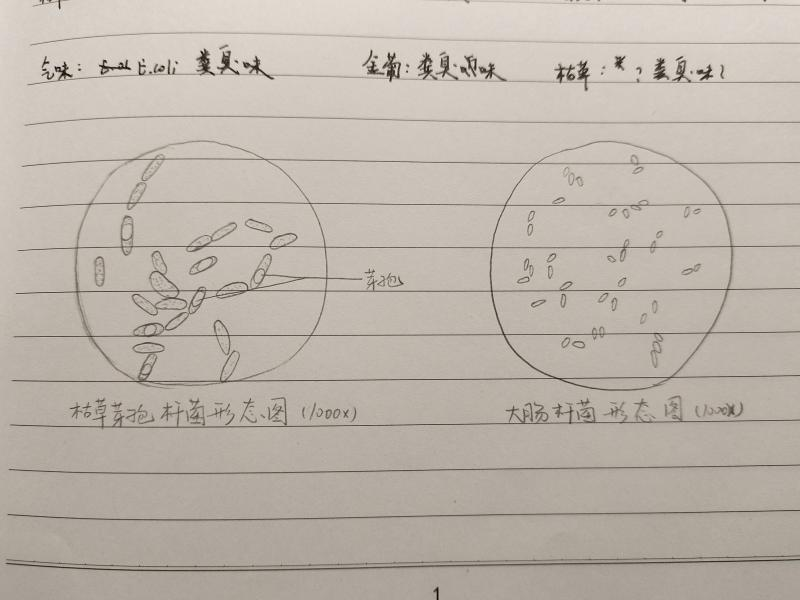 气味: E.coli 粪臭味 金葡: 粪臭味 枯草: ? 粪臭味?
芽孢
枯草芽孢杆菌形态图 (1000x) 大肠杆菌形态图 (1000x)
1